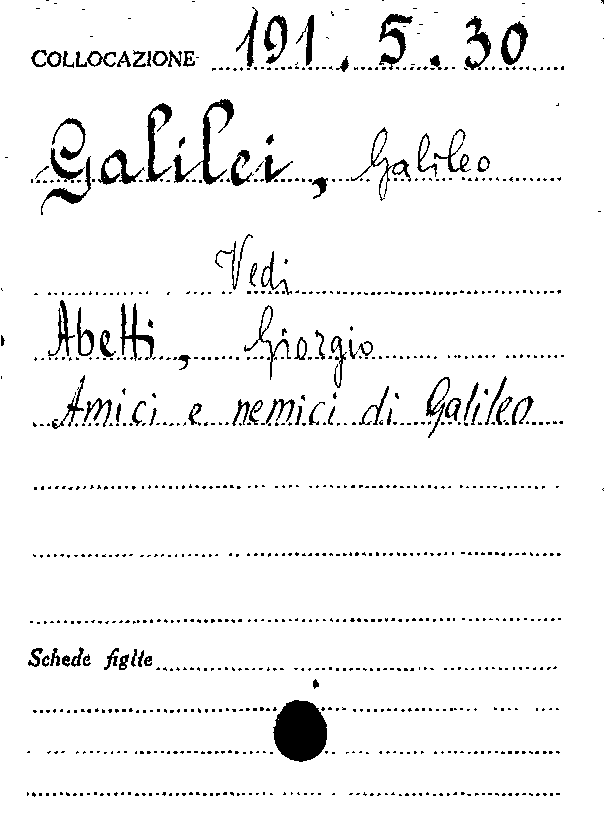 COLLOCAZIONE 191.5.30
Galilei, Galileo
Vedi
Abetti, Giorgio
Amici e nemici di Galileo
Schede figlie